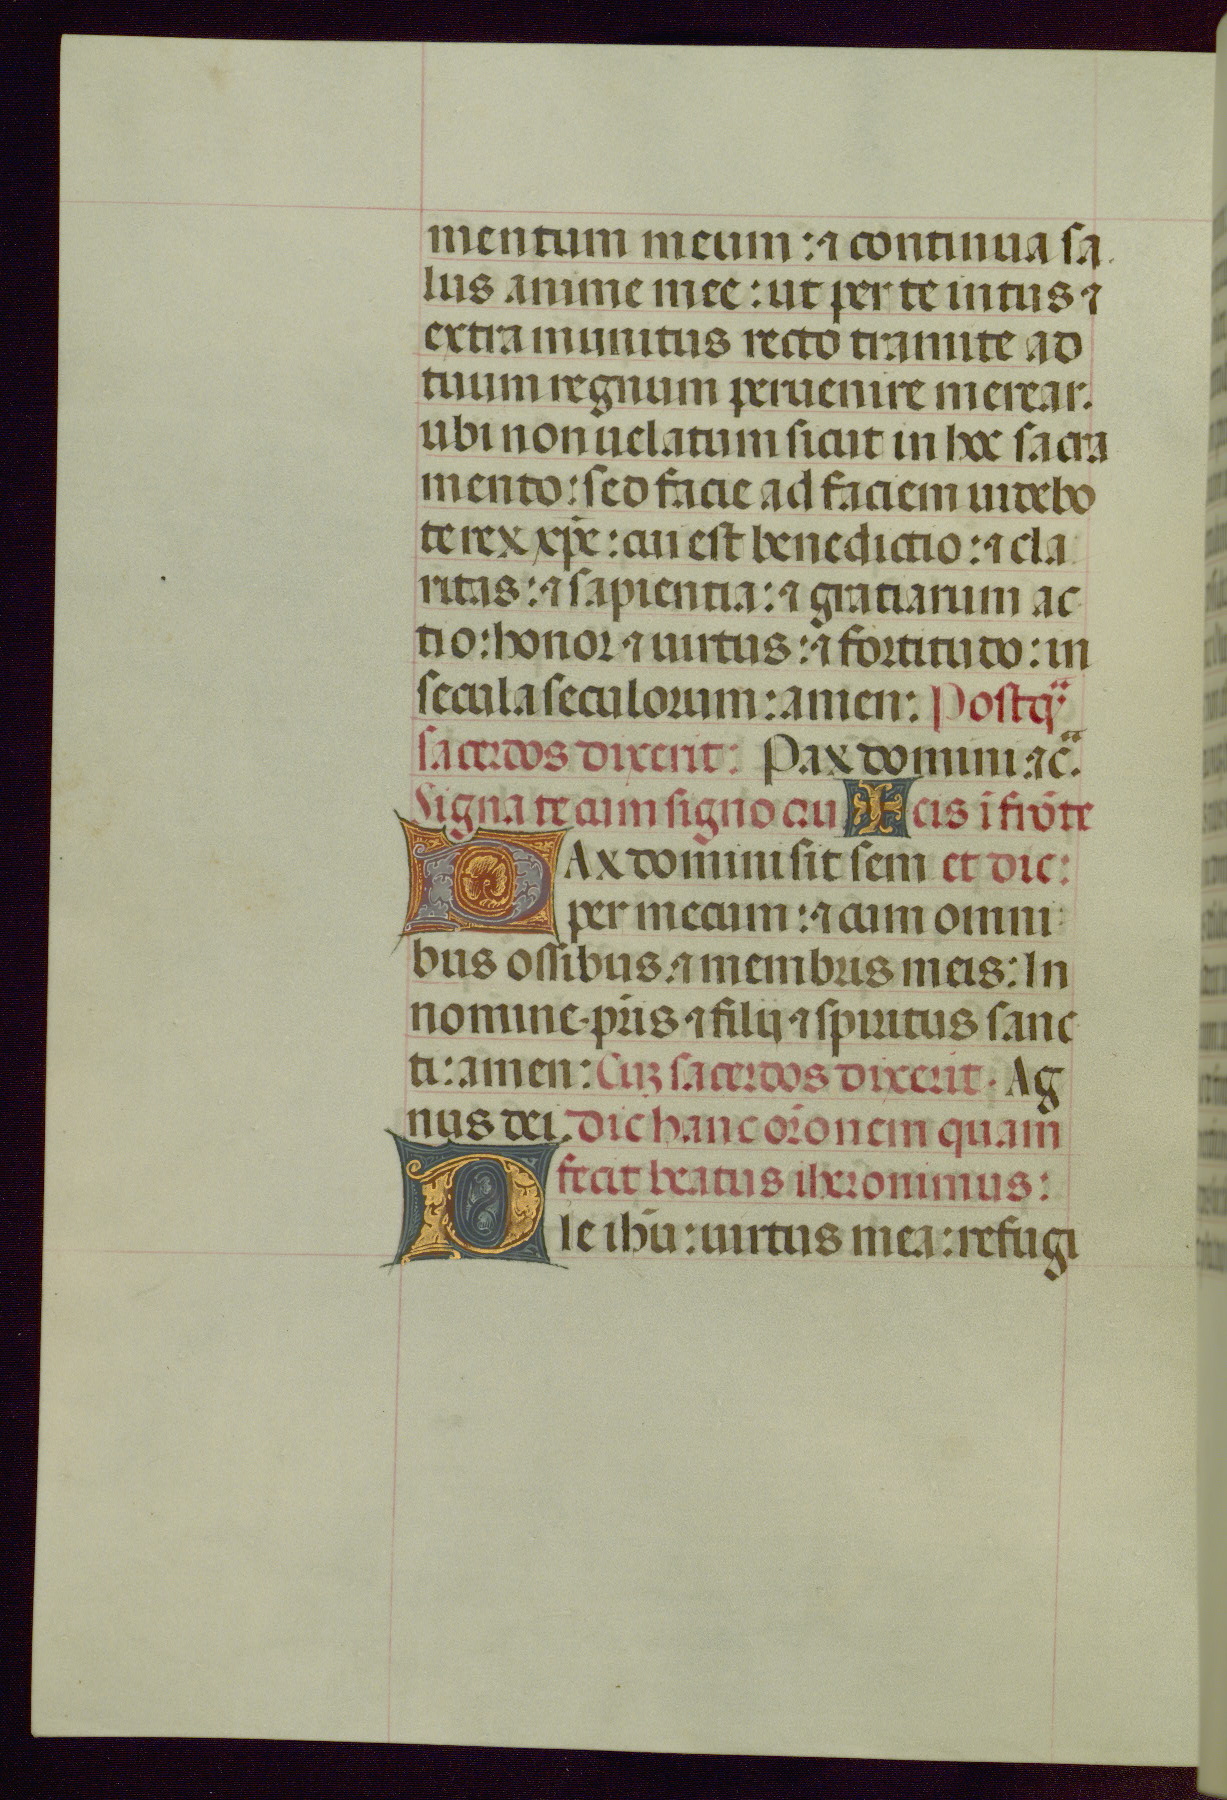 mentum meum : ⁊ continua sa
lus anime mee : ut per te intus ⁊
extra munitus recto tramite ad
tuum regnum peruenire merear.
ubi non uelatum sicut in hoc sacra
mento : sed facie ad faciem uidebo
te rex xp̄e : cui est benedictio : ⁊ cla
ritas : ⁊ sapientia : ⁊ gratiarum ac
tio : honor ⁊ uirtus : ⁊ fortitudo : in
secula seculorum : amen : Postqᷓ
sacerdos dixerit : Pax domini ⁊cᷓ.
Signa te cum signo cru ✠ cis ī frōte
PAx domini sit sem et dic :
per mecum : ⁊ cum omni
bus ossibus ⁊ membris meis : In
nomine pr̄is ⁊ filij ⁊ spiritus sanc
ti : amen : Cuꝫ sacerdos dixerit . Ag
nus dei . Dic hanc or̄onem quam
fecit beatus iheronimus :
Dle ihu̅ : uirtus mea : refugi